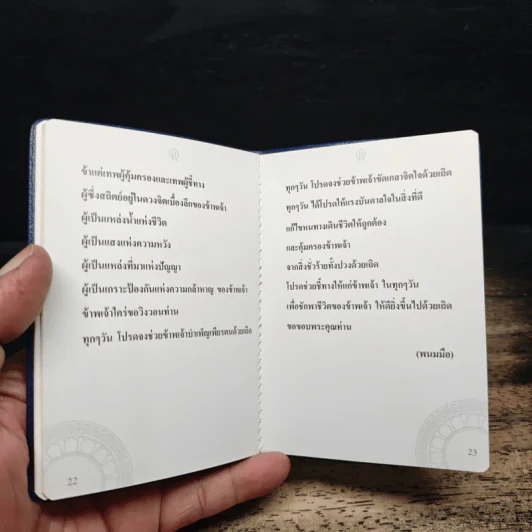 ข้าแต่เทพผู้คุ้มครองและเทพผู้ชี้ทาง
ผู้ซึ่งสถิตย์อยู่ในดวงจิตเบื้องลึกของข้าพเจ้า
ผู้เป็นแหล่งน้ำแห่งชีวิต
ผู้เป็นแสงแห่งความหวัง
ผู้เป็นแหล่งที่มาแห่งปัญญา
ผู้เป็นเกราะป้องกันแห่งความกล้าหาญ ของข้าพเจ้า
ข้าพเจ้าใคร่ขอวิงวอนท่าน
ทุกๆวัน โปรดจงช่วยข้าพเจ้าบำเพ็ญเพียรตนด้วยเถิด
22
ทุกๆวัน โปรดจงช่วยข้าพเจ้าขัดเกลาจิตใจด้วยเถิด
ทุกๆวัน ได้โปรดให้แรงบันดาลใจในสิ่งที่ดี
แก้ไขหนทางเดินชีวิตให้ถูกต้อง
และคุ้มครองข้าพเจ้า
จากสิ่งชั่วร้ายทั้งปวงด้วยเถิด
โปรดช่วยชี้ทางให้แก่ข้าพเจ้า ในทุกๆวัน
เพื่อรักษาชีวิตของข้าพเจ้า ให้ดียิ่งขึ้นไปด้วยเถิด
ขอขอบพระคุณท่าน
(พนมมือ)
23